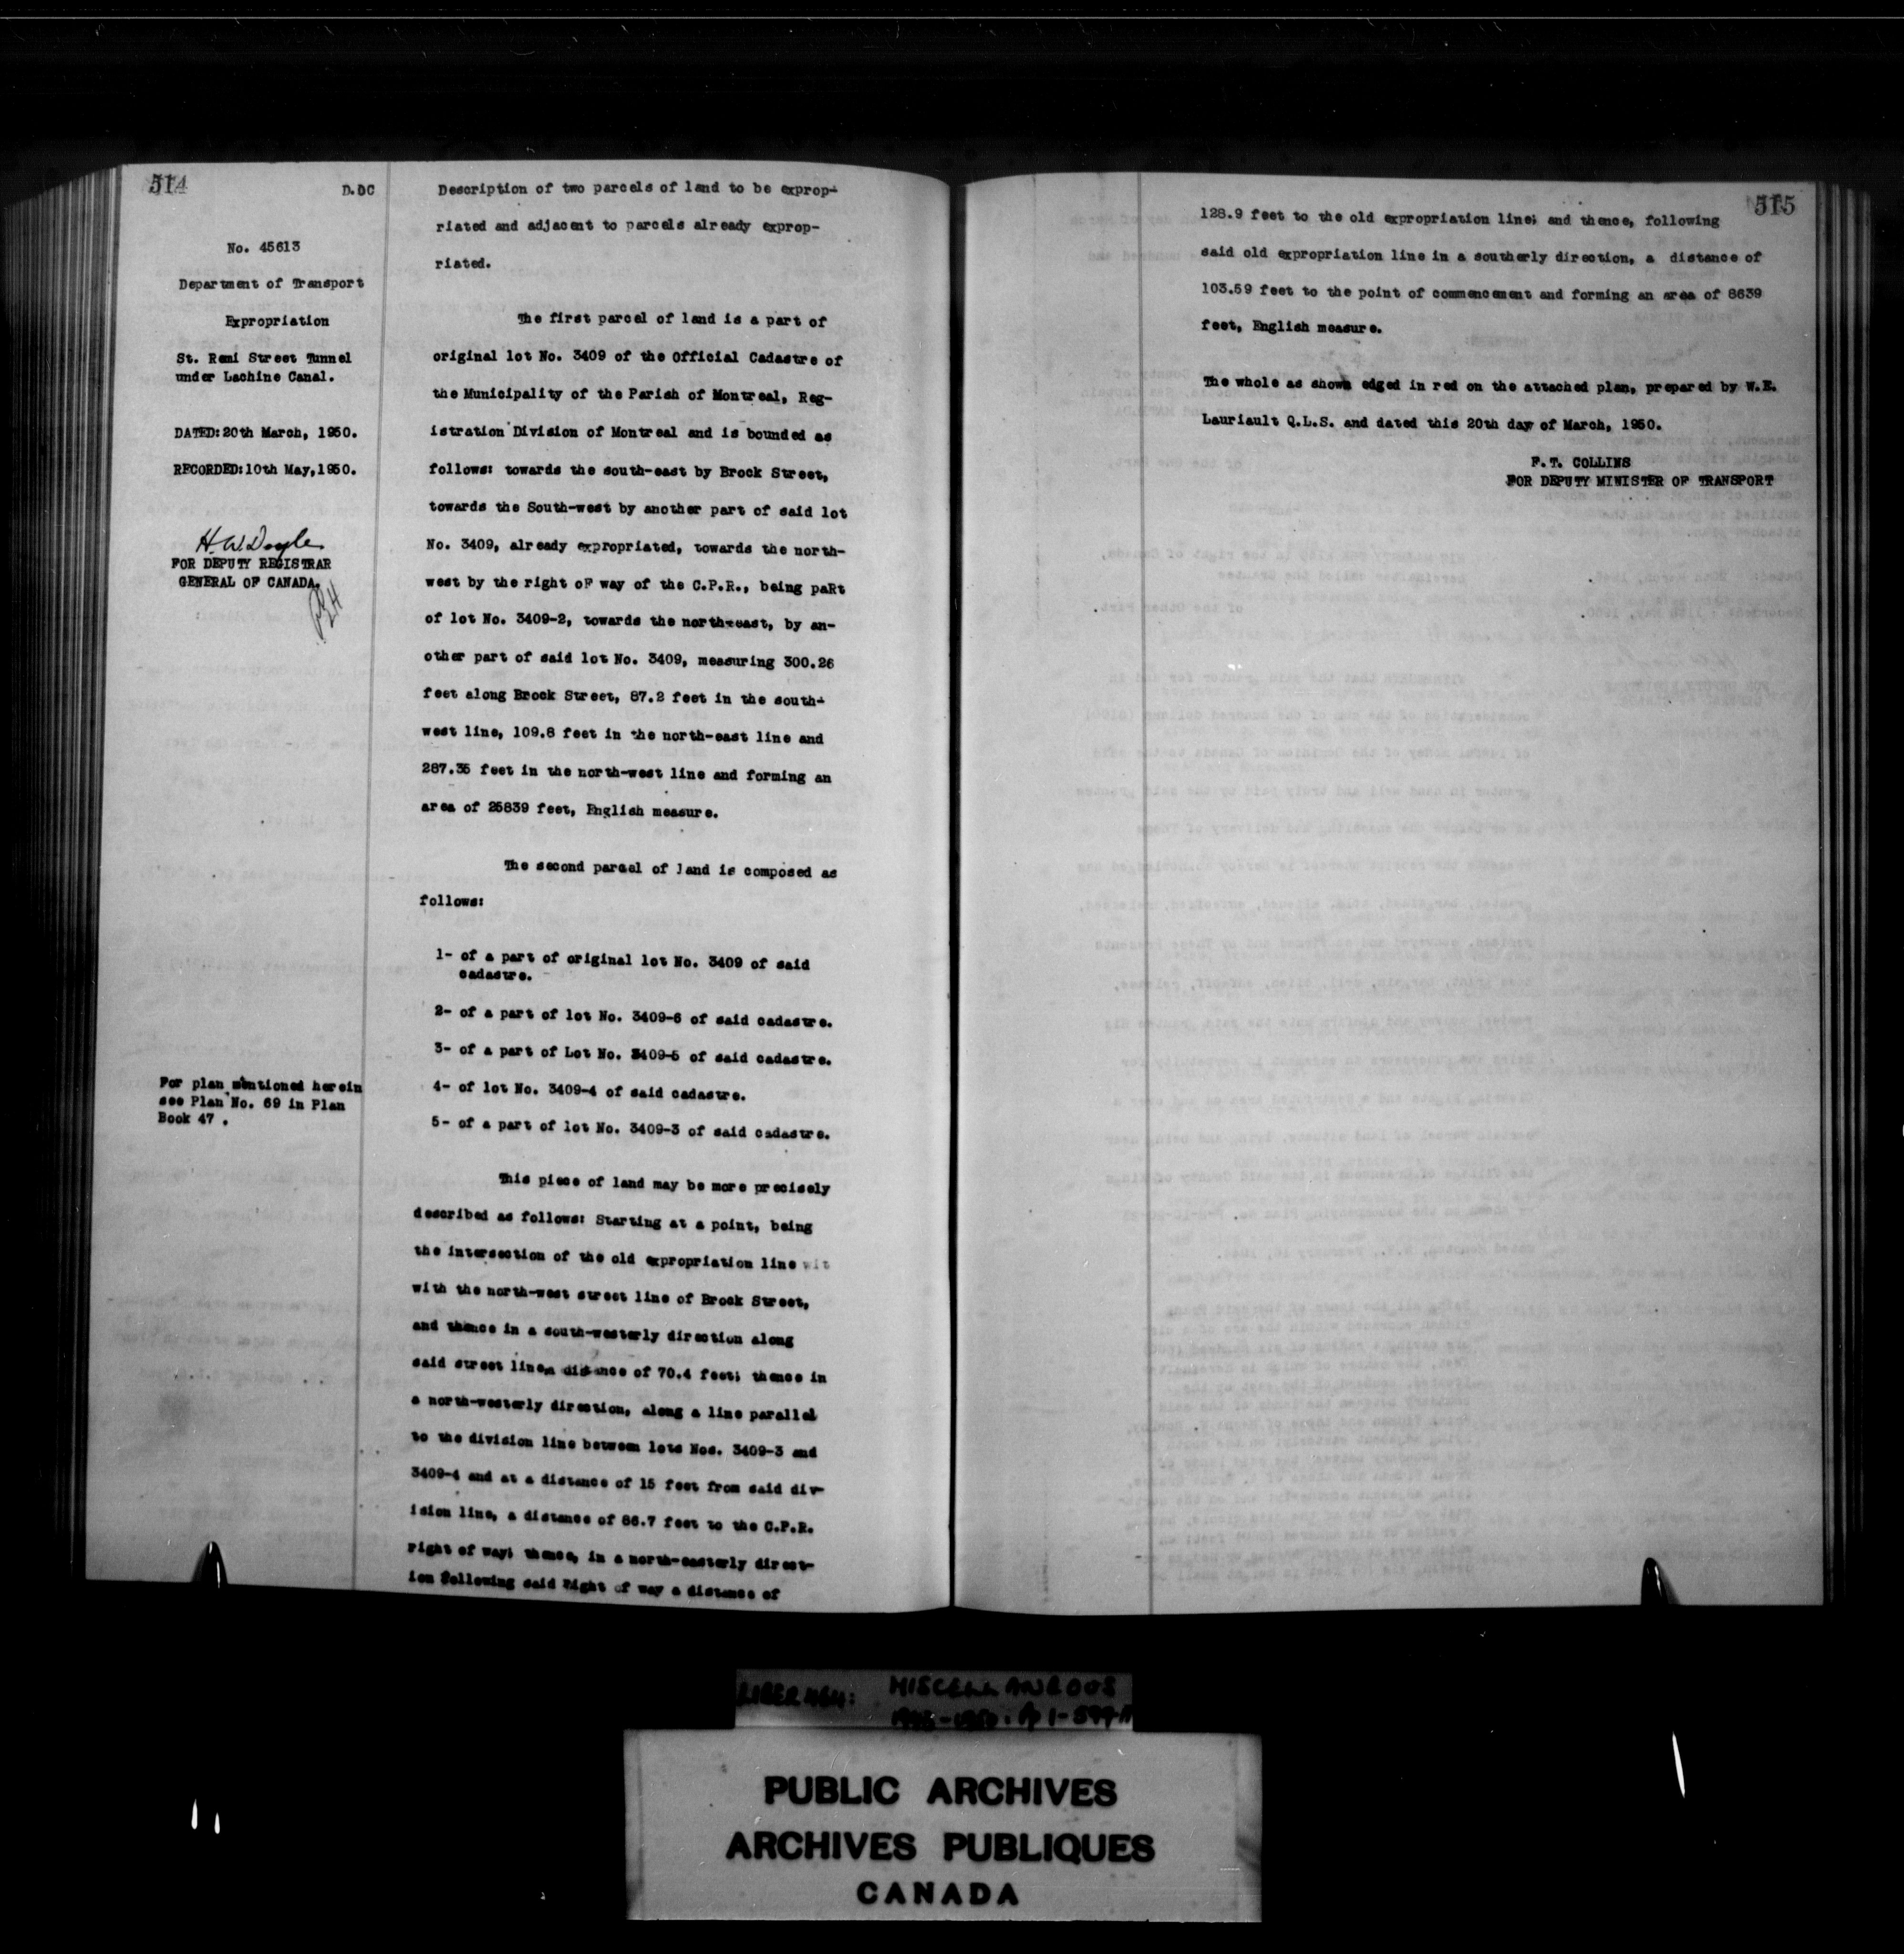 514
D.DC
No. 45613
Department of Transport
Expropriation
St. Remi Street Tunnel
under Lachine Canal.
DATED:20th March, 1950.
RECORDED:10th May,1950.
H.W.Doyle
FOR DEPUTY REGISTRAR
GENERAL OF CANADA.
For plan mentioned herein
see Plan No. 69 in Plan
Book 47 .
Description of two parcels of land to be exprop-
riated and adjacent to parcels already exprop-
riated.
The first parcel of land is a part of
original lot No. 3409 of the Official Cadastre of
the Municipality of the Parish of Montreal, Reg-
istration Division of Montreal and is bounded as
follows: towards the south-east by Brock Street,
towards the South-west by another part of said lot
No. 3409, already expropriated, towards the north-
west by the right oF way of the C.P.R., being paRt
of lot No. 3409-2, towards the north-east, by an-
other part of said lot No. 3409, measuring 300.26
feet along Brock Street, 87.2 feet in the south-
west line, 109.8 feet in the north-east line and
287.35 feet in the north-west line and forming an
area of 25839 feet, English measure.
The second parcel of land is composed as
follows:
1- of a part of original lot No. 3409 of said
cadastre.
2- of a part of lot No. 3409-6 of said cadastre.
3- of a part of Lot No. 3409-5 of said cadastre.
4- of lot No. 3409-4 of said cadastre.
5- of a part of lot No. 3409-3 of said cadastre.
This piece of land may be more precisely
described as follows: Starting at a point, being
the intersection of the old expropriation line wit
with the north-west street line of Brock Street,
and thence in a south-westerly direction along
said street line,a distance of 70.4 feet; thence in
a north-westerly direction, along a line parallel
to the division line between lots Nos. 3409-3 and
3409-4 and at a distance of 15 feet from said div-
ision line, a distance of 86.7 feet to the C.P.R.
right of way; thence, in a north-easterly direct-
ion following said Right of way a distance of
515
128.9 feet to the old expropriation line; and thence, following
said old expropriation line in a southerly direction, a distance of
103.59 feet to the point of commencement and forming an area of 8639
feet, English measure.
The whole as shown edged in red on the attached plan, prepared by W.E.
Lauriault Q.L.S. and dated this 20th day of March, 1950.
F.T. COLLINS
FOR DEPUTY MINISTER OF TRANSPORT
LIBER 464: MISCELLANEOUS
PUBLIC ARCHIVES
ARCHIVES PUBLIQUES
CANADA